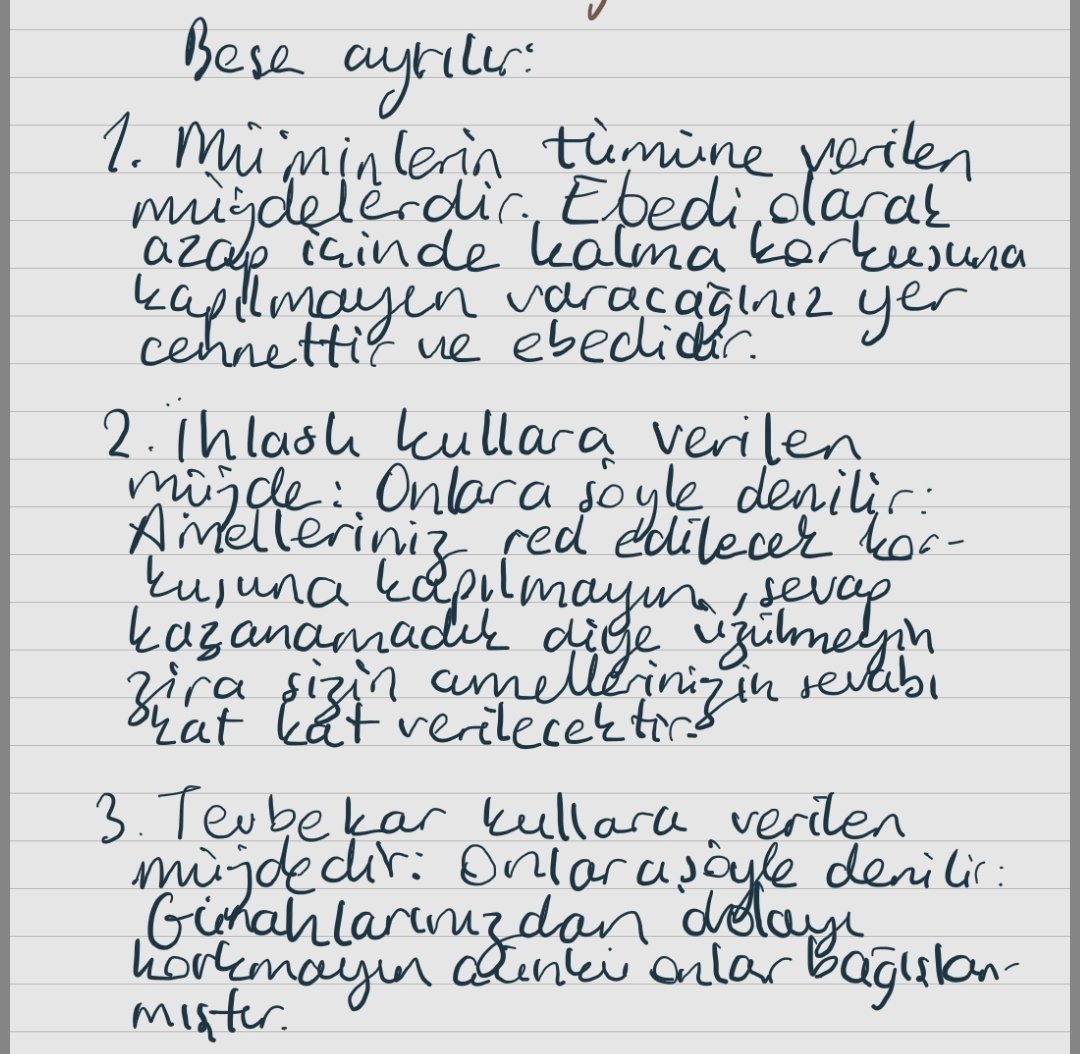 Beşe ayrılır:
1. Mü'minlerin tümüne verilen
müjdelerdir. Ebedi olarak
azap içinde kalma korkusuna
kapılmayın varacağınız yer
cennettir ve ebedidir.
2. İhlaslı kullara verilen
müjde: Onlara şöyle denilir:
Amelleriniz red edilecek kor-
kusuna kapılmayın, sevap
kazanamadık diye üzülmeyin
zira sizin amellerinizin sevabı
kat kat verilecektir.
3. Tevbekar kullara verilen
müjdedir: Onlara şöyle denilir:
Günahlarınızdan dolayı
korkmayın çünkü onlar bağışlan-
mıştır.